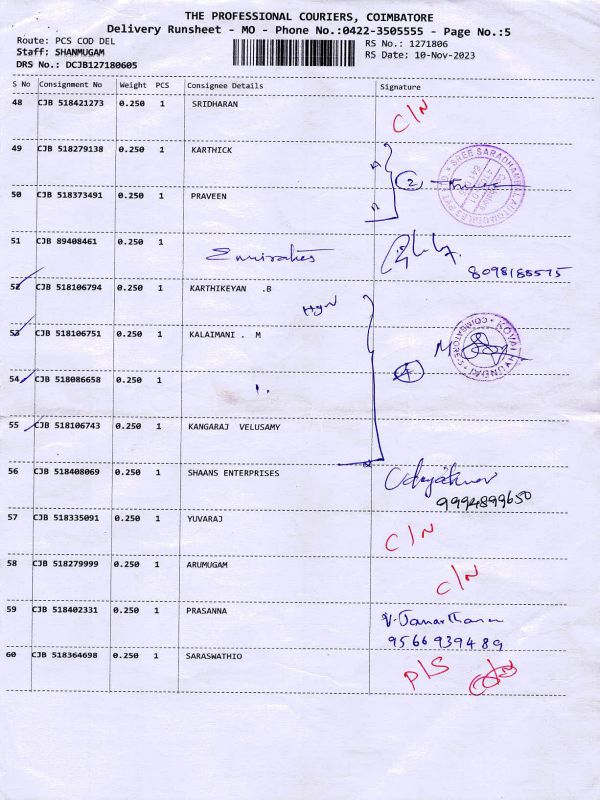 THE PROFESSIONAL COURIERS, COIMBATORE
Delivery Runsheet - MO - Phone No.:0422-3505555 - Page No.:5
Route: PCS COD DEL
RS No.: 1271806
Staff: SHANMUGAM
RS Date: 10-Nov-2023
DRS No.: DCJB127180605
S No Consignment No Weight PCS Consignee Details Signature
48 CJB 518421273 0.250 1 SRIDHARAN C/N
49 CJB 518279138 0.250 1 KARTHICK
2
SREE SARADHAMBAL AUTOMOBILES PVT LTD
50 CJB 518373491 0.250 1 PRAVEEN
51 CJB 89408461 0.250 1 Emirates
8098188575
52 CJB 518106794 0.250 1 KARTHIKEYAN .B
Hyn
53 CJB 518106751 0.250 1 KALAIMANI . M
4
KOVAI HYUNDAI * COIMBATORE *
54 CJB 518086658 0.250 1
55 CJB 518106743 0.250 1 KANGARAJ VELUSAMY
56 CJB 518408069 0.250 1 SHAANS ENTERPRISES
9994899650
57 CJB 518335091 0.250 1 YUVARAJ C/N
58 CJB 518279999 0.250 1 ARUMUGAM C/N
59 CJB 518402331 0.250 1 PRASANNA V. Janarthanan
9566939489
60 CJB 518364698 0.250 1 SARASWATHIO P/S